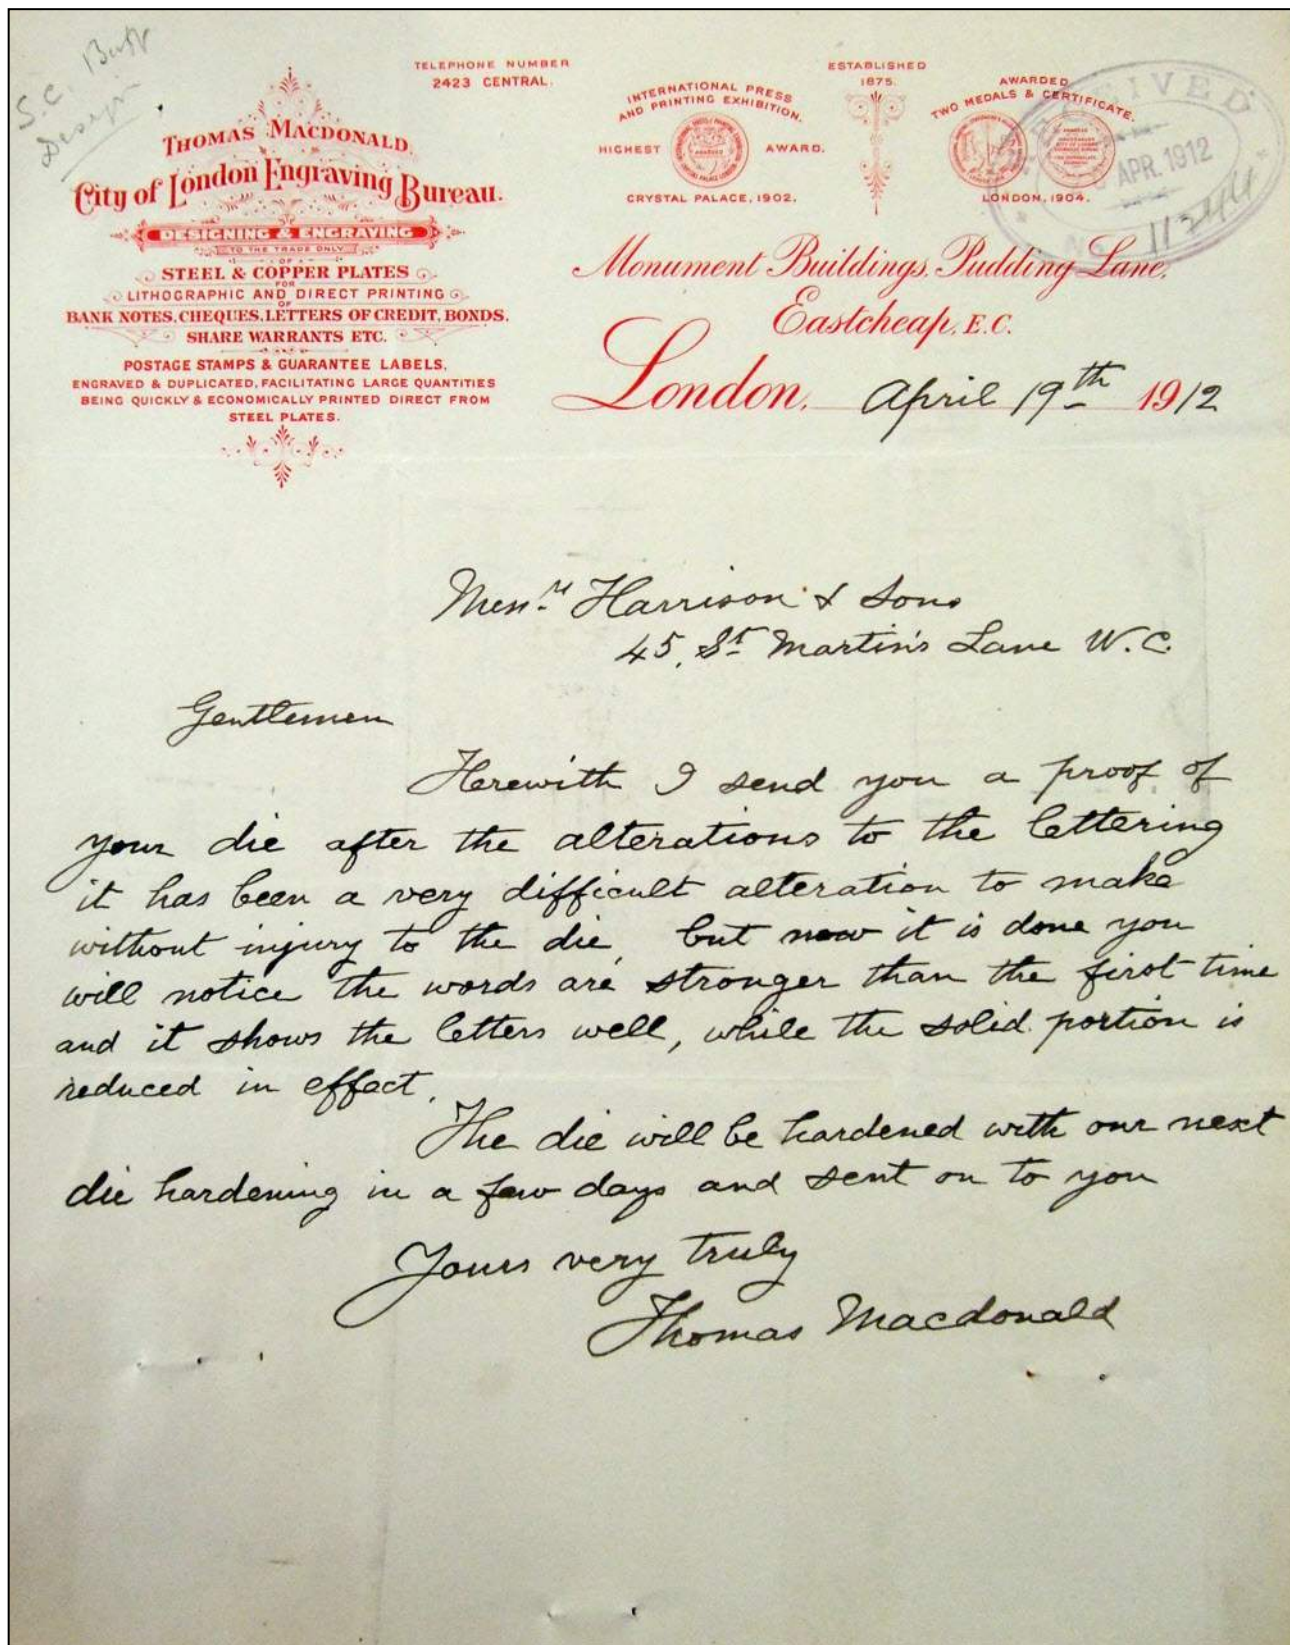 S.C.
Design
TELEPHONE NUMBER
2423 CENTRAL.
THOMAS MACDONALD
City of London Engraving Bureau.
DESIGNING & ENGRAVING
TO THE TRADE ONLY
OF
STEEL & COPPER PLATES
FOR
LITHOGRAPHIC AND DIRECT PRINTING
OF
BANK NOTES, CHEQUES, LETTERS OF CREDIT, BONDS.
SHARE WARRANTS ETC.
POSTAGE STAMPS & GUARANTEE LABELS,
ENGRAVED & DUPLICATED, FACILITATING LARGE QUANTITIES
BEING QUICKLY & ECONOMICALLY PRINTED DIRECT FROM
STEEL PLATES.
INTERNATIONAL PRESS
AND PRINTING EXHIBITION.
HIGHEST AWARD.
CRYSTAL PALACE, 1902.
ESTABLISHED
1875.
AWARDED
TWO MEDALS & CERTIFICATE.
LONDON, 1904.
RECEIVED
APR. 1912
Monument Buildings, Pudding Lane,
Eastcheap, E.C.
London, April 19th 1912
Messrs Harrison & Sons
45, St Martin's Lane W.C.
Gentlemen
Herewith I send you a proof of
your die after the alterations to the lettering
it has been a very difficult alteration to make
without injury to the die, but now it is done you
will notice the words are stronger than the first time
and it shows the letters well, while the solid portion is
reduced in effect.
The die will be hardened with our next
die hardening in a few days and sent on to you
Yours very truly
Thomas Macdonald